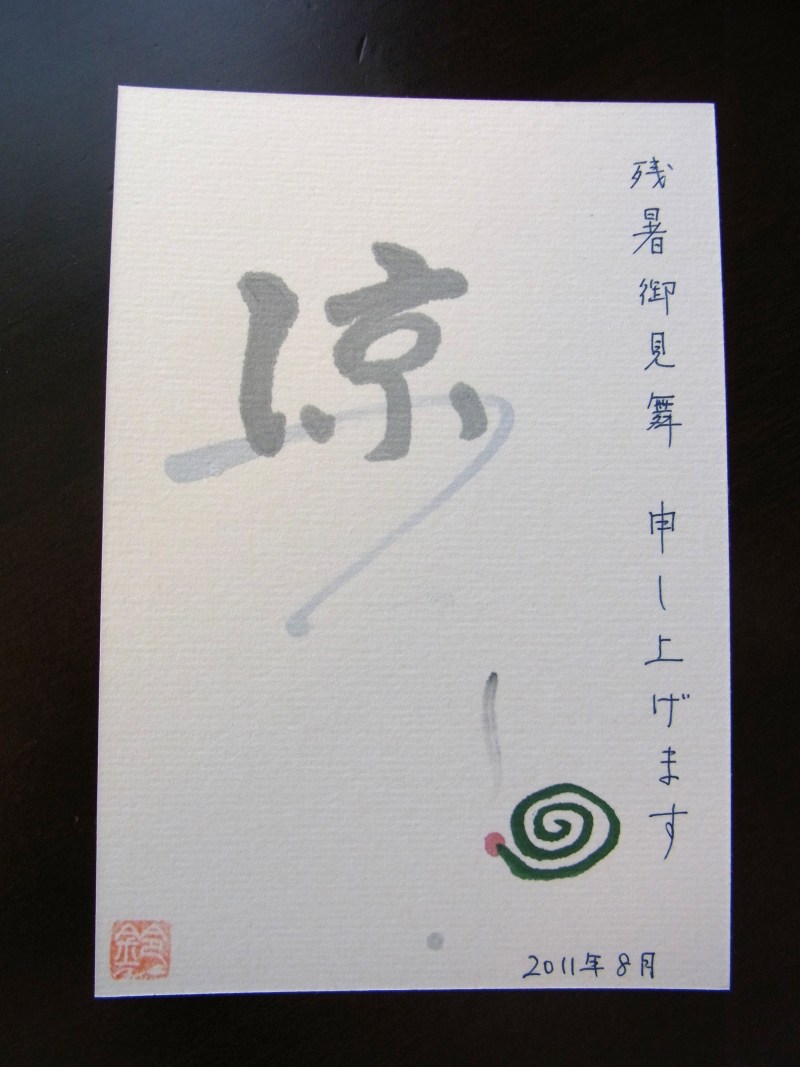 残暑御見舞 申し上げます
涼
2011年8月